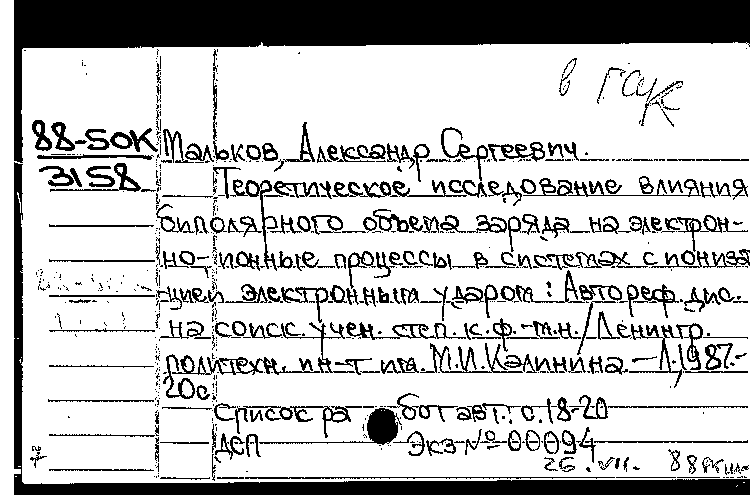 в ГСЧК
88-50К Мальков, Александр Сергеевич.
3158 Теоретическое исследование влияния
биполярного объема заряда на электрон-
но-ионные процессы в системах с ониза
цией электронным ударом: Автореф. дис.
на соиск. учен. степ. к.ф.-м.н./Ленингр.
политехн. ин-т им. М.И.Калинина.-Л.,1987.-
20с
Список ра бот авт.: с.18-20
ДСП Экз № 00094
26.VII. 88